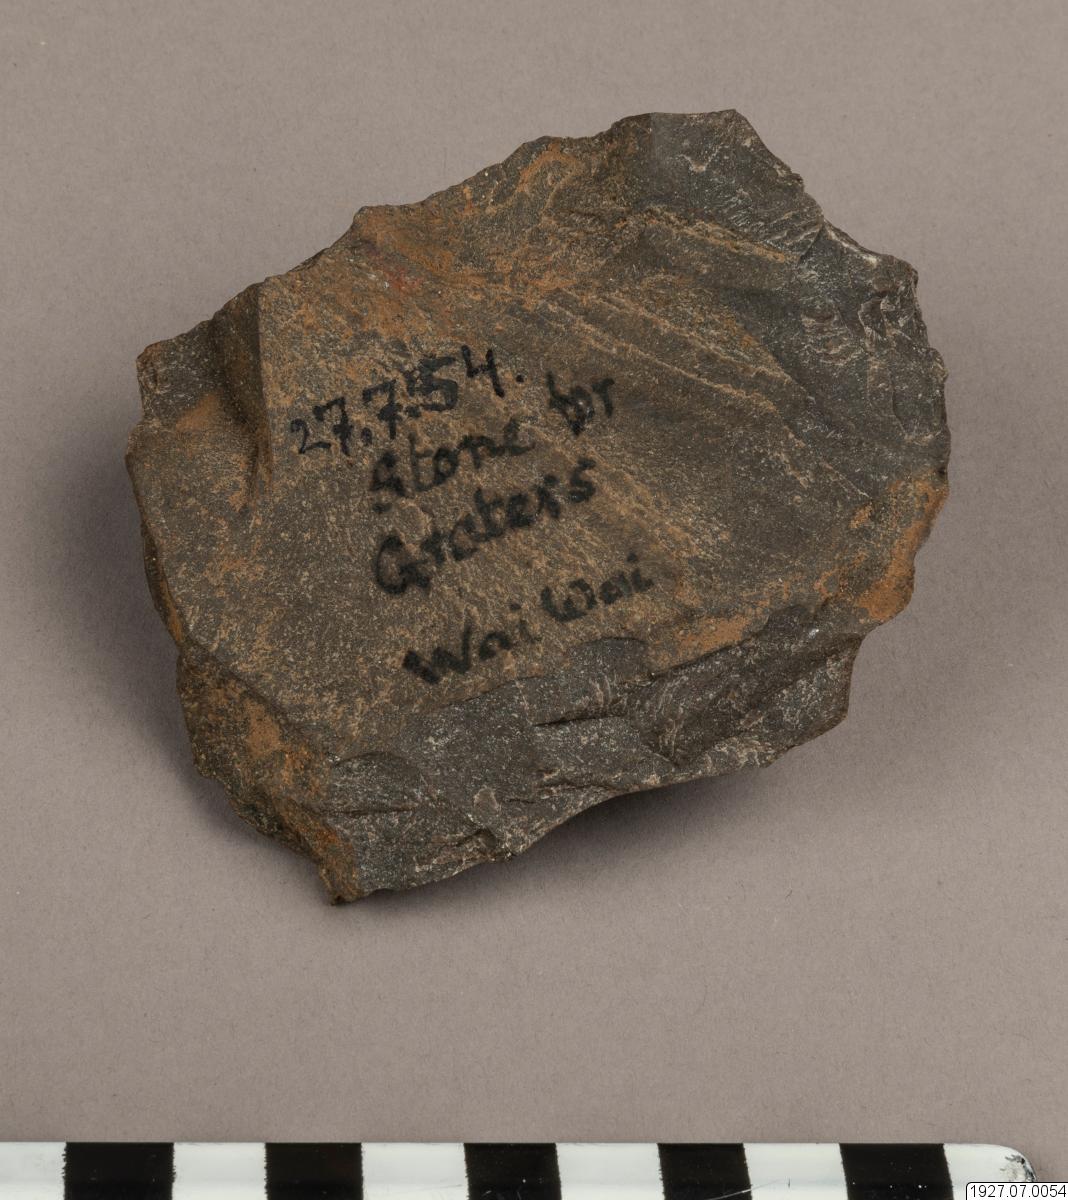 27.7.54.
Stone for
Graters
Wai Wai
1927.07.0054